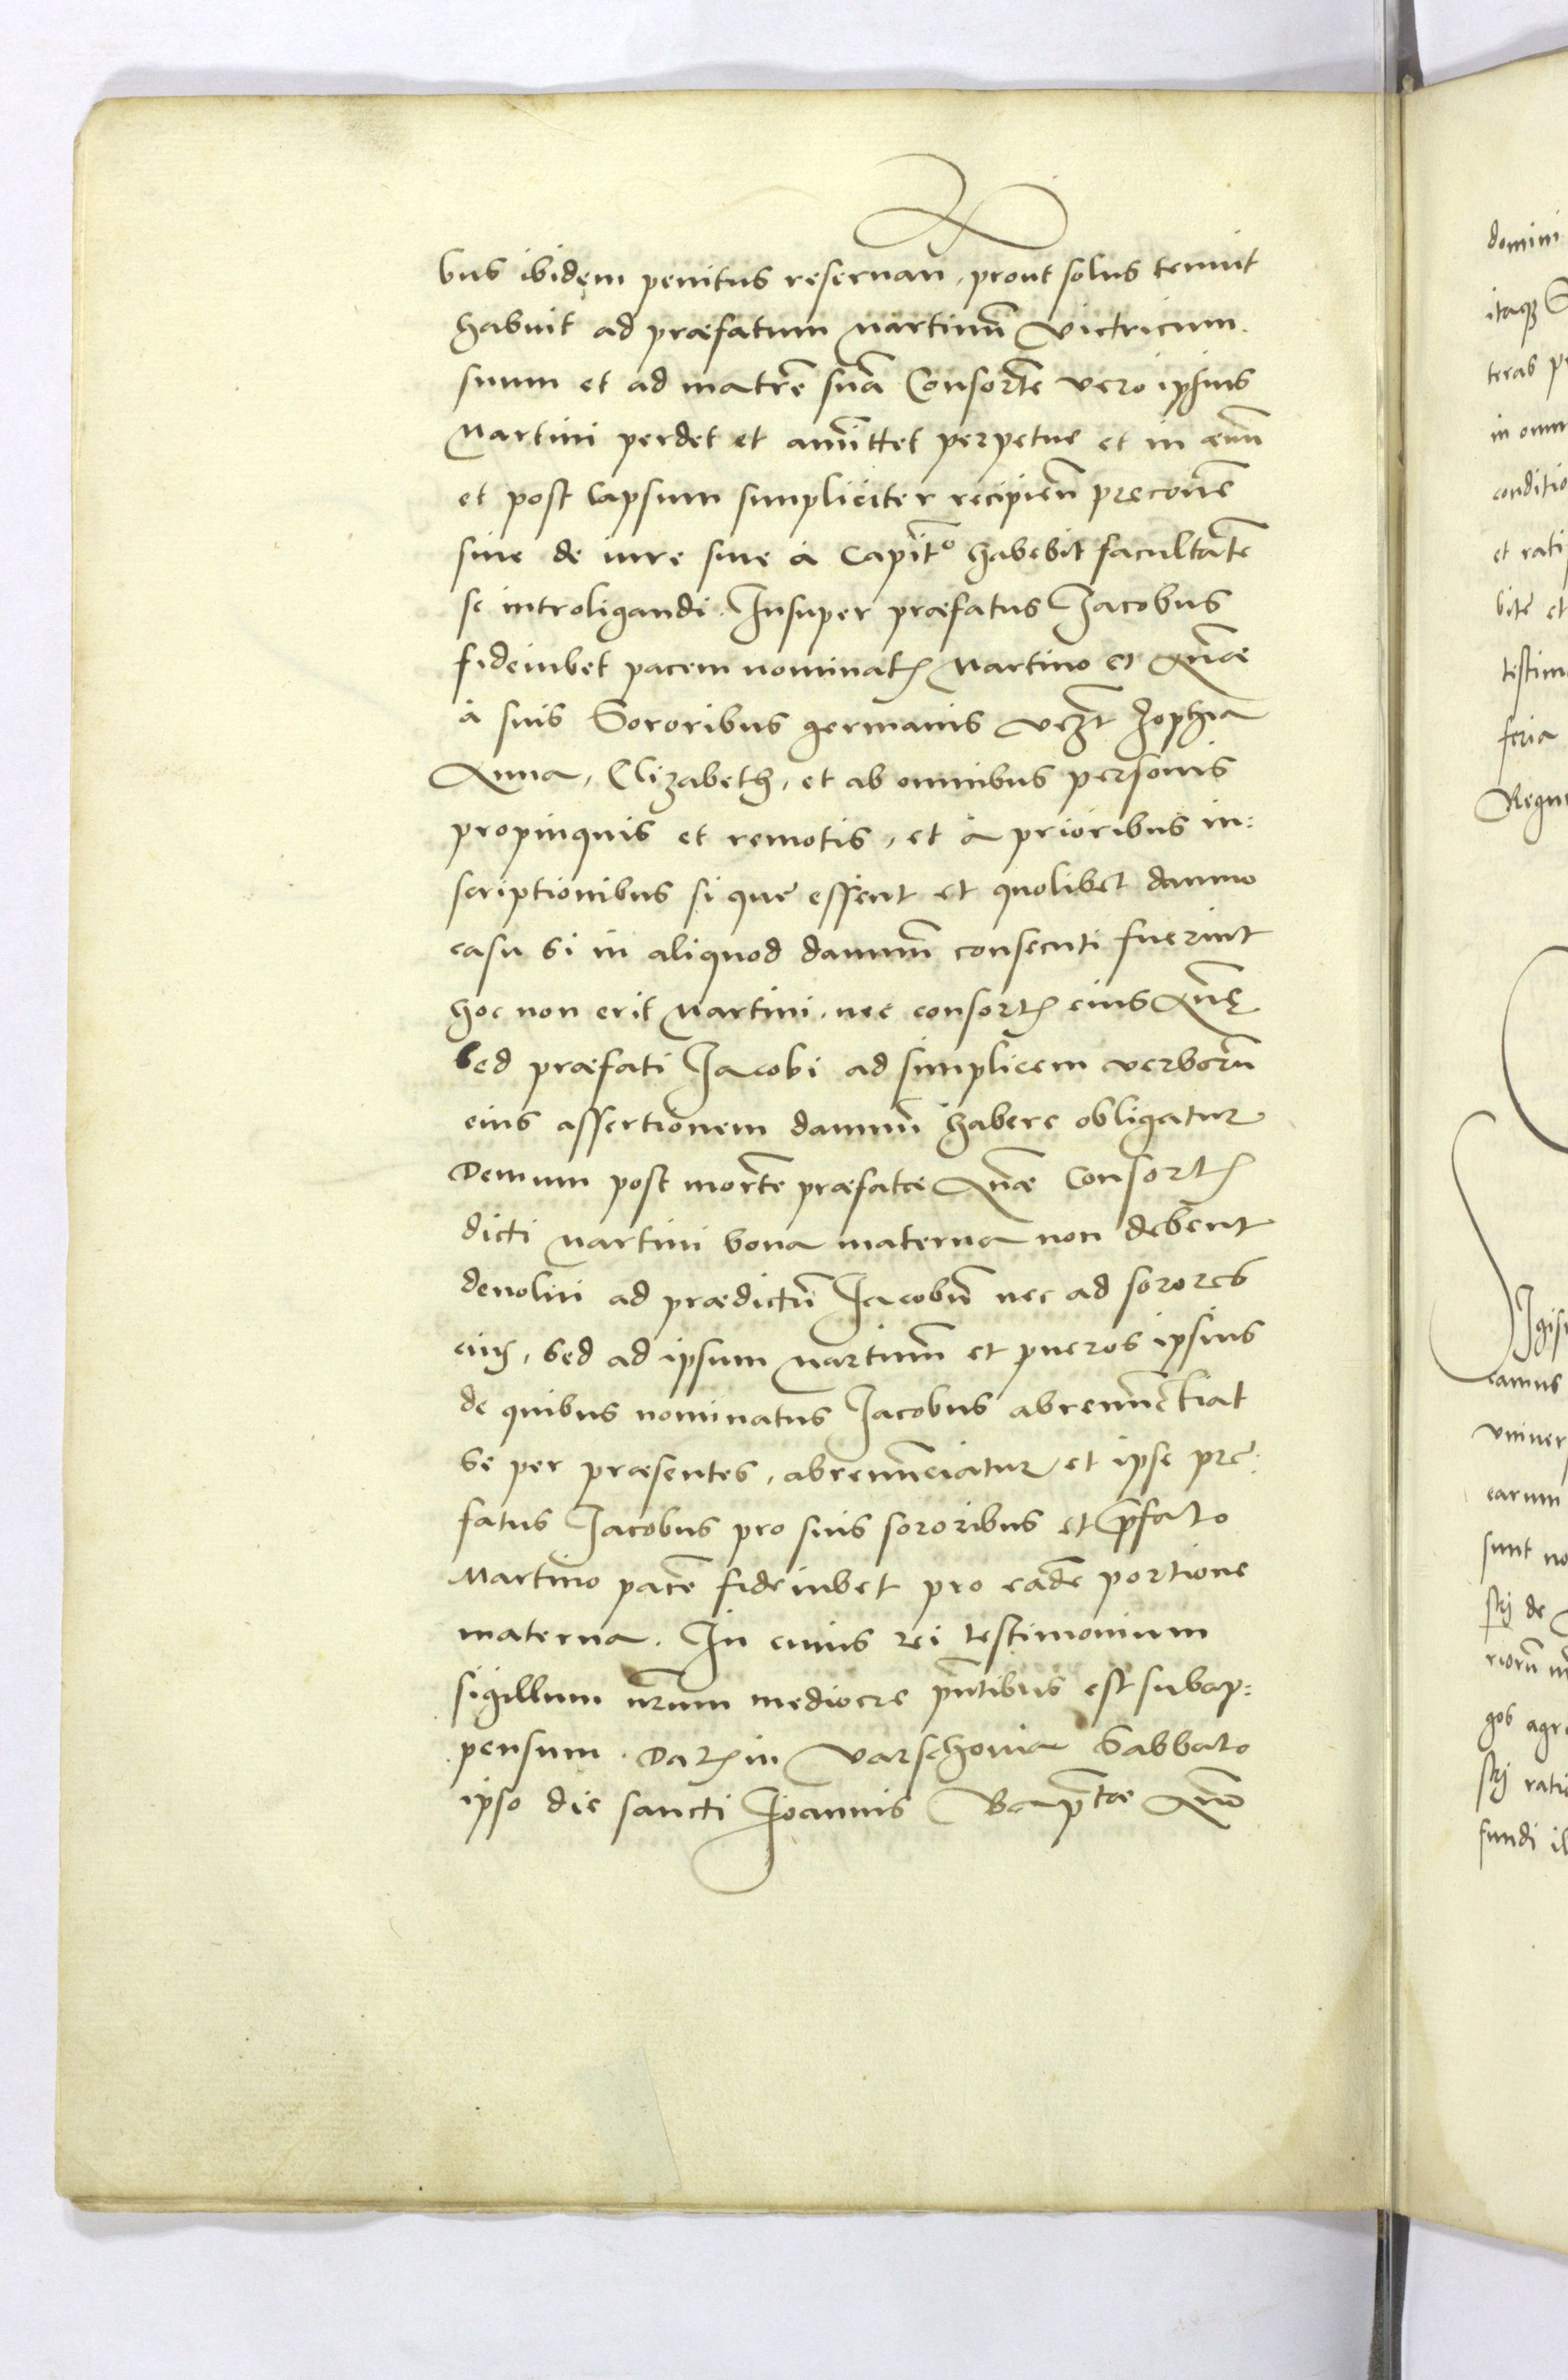 bus ibidem penitus reseruan, prout solus tenuit
habuit ad præfatum Martinū victricum
suum et ad matrē suā Consortē vero ipsius
Martini perdet et amittet perpetue et in æuū
et post lapsum simpliciter recipien̄
siue de iure siue à Capitō habebit facultatē
se introligandi. Insuper præfatus Jacobus
fideiubet pacem nominat Martino et Annæ
à suis Sororibus germanis vczt Zophia
Anna, Elizabeth, et ab omnibus personis
propinquis et remotis, et à prioribus in:
scriptionibus si que essent et quolibet damno
casu si in aliquod damnū consecuti fuerint
hoc non erit Martini, nec consort eius Annę
sed præfati Jacobi ad simplicem verborū
eius assertionem damnū habere obligatur
Demum post mortē præfatæ Annæ Consort
dicti Martini bona materna non debent
deuolui ad prædictū Jacobū nec ad sorores
eius, sed ad ipsum Martinū et pueros ipsius
de quibus nominatus Jacobus abrenūctiat
se per præsentes, abrenūciatur et ipse pre:
fatus Jacobus pro suis sororibus et p̄fato
Martino pacē fideiubet pro eadē portione
materna. In cuius rei testimonium
sigillum nr̄um mediocre pn̄tibus est subap:
pensum. Dat in Varschouia Sabbato
ipso die sancti Joannis Bap̄tæ Anno
domini
itaq
teras
in omn
conditio
et rati
bite et
testim
feria
Regn
Igis
camus
vniuer
earum
sunt no
de
riorū
gos agr
rati
fundi il